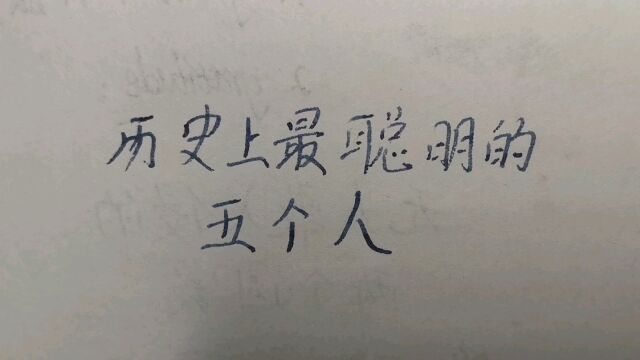 历史上最聪明的
五个人